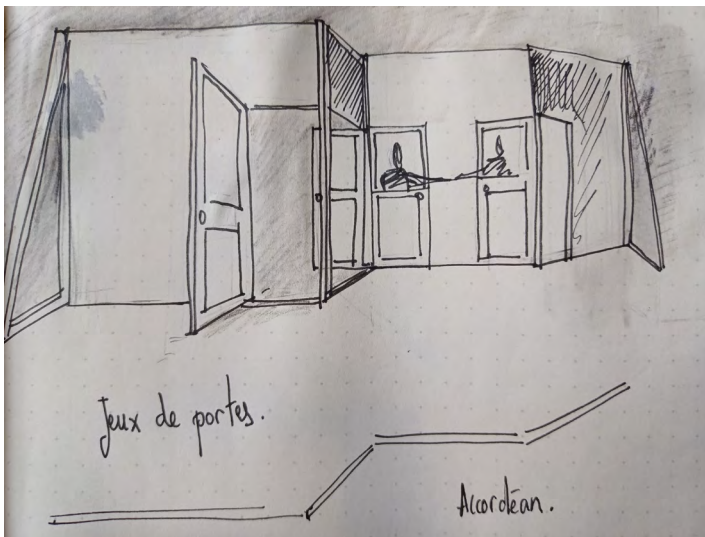 Jeux de portes.
Accordéan.